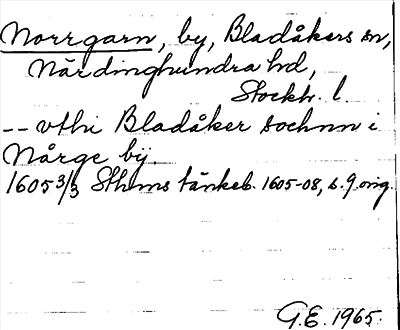 Norrgarn, by, Bladåkers sn,
Närdinghundra hd,
Stockh. l.
-- vthi Bladåker sochnn i
Nårge bÿ
1605 3/3 Sthms tänkeb. 1605-08, s. 9 orig.
G.E. 1965.